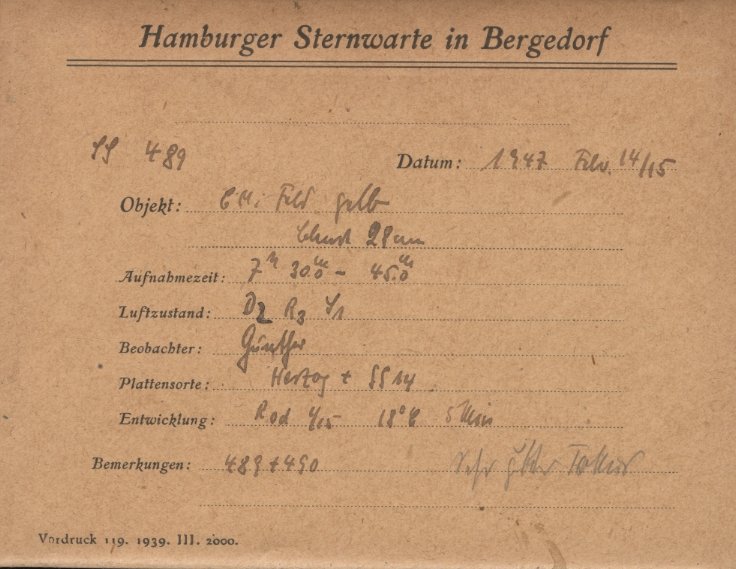 Hamburger Sternwarte in Bergedorf
SS 489 Datum: 1947 Febr. 14/15
Objekt: Feld gelb
28 cm
Aufnahmezeit: 7h 30.0m – 45.0m
Luftzustand: D2 R3 S1
Beobachter: Günther
Plattensorte: Herzog + SS 14
Entwicklung: Rod 1/25 18°C 5 Min
Bemerkungen: 489+490 Sehr guter
Vordruck 119. 1939. III. 2000.